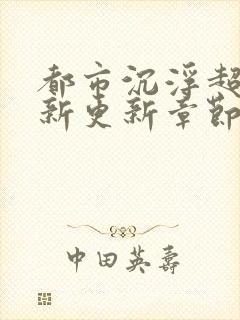 都市沉浮超
新更新章節
中田英壽